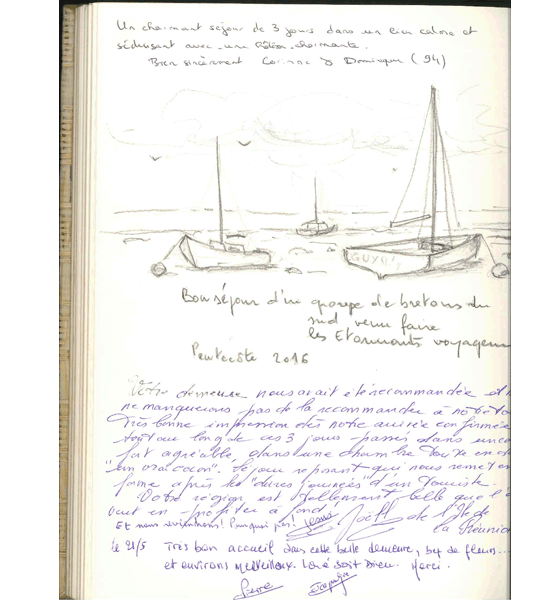 Un charmant séjour de 3 jours dans un lieu calme et
séduisant avec une hôtesse charmante.
Bien sincèrement Corinne & Dominique (94)
GUYO
Bon séjour d'un groupe de bretons du
sud venu faire
les Etonnants voyageurs
Pentecôte 2016
Votre demeure nous avait été recommandée et n
ne manquerons pas de la recommander à notre to
Très bonne impression dès notre arrivée confirmée
tout au long de ces 3 jours passés dans un ca
fort agréable, dans une chambre
"un vrai cocon". Séjour reposant qui nous remet en
forme après les "dures journées" d'un touriste.
Votre région est tellement belle que l'o
veut en profiter à fond!
Et nous reviendrons! Pourquoi pas! Joëlle de l'Ile de
la Réunion
le 21/5 Très bon accueil dans cette belle demeure, bcp de fleurs...
et environs merveilleux. Loué soit Dieu. Merci.